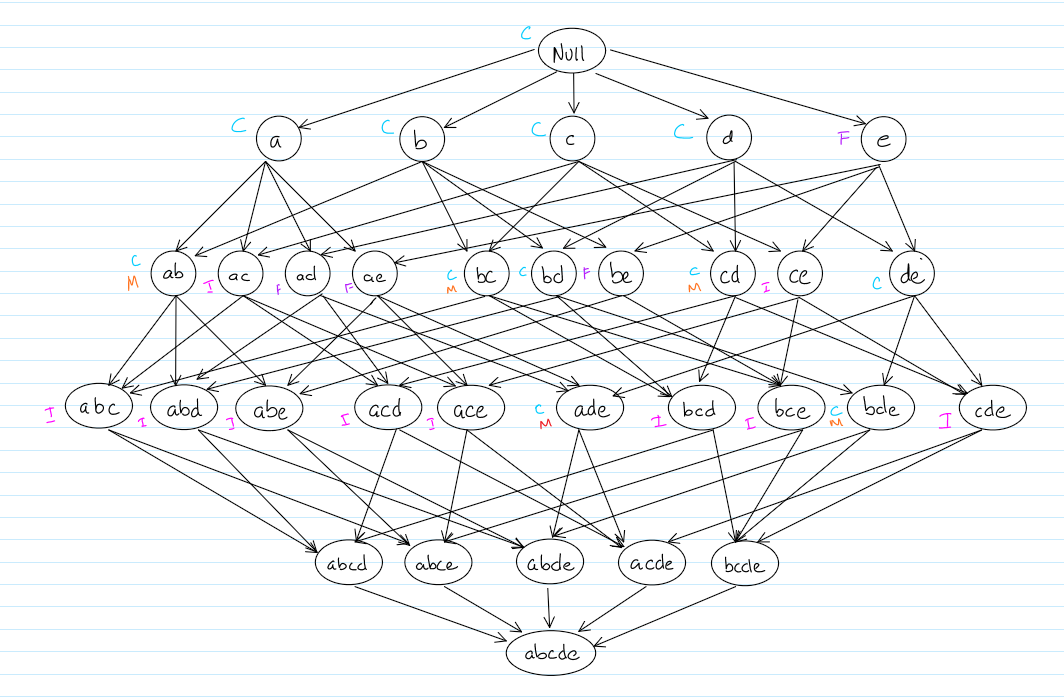 C Null
C a C b C c C d F e
C M ab I ac F ad F ae C M bc C bd F be C M cd I ce C de
I abc I abd I abe I acd I ace C M ade I bcd I bce C M bde I cde
abcd abce abde acde bcde
abcde